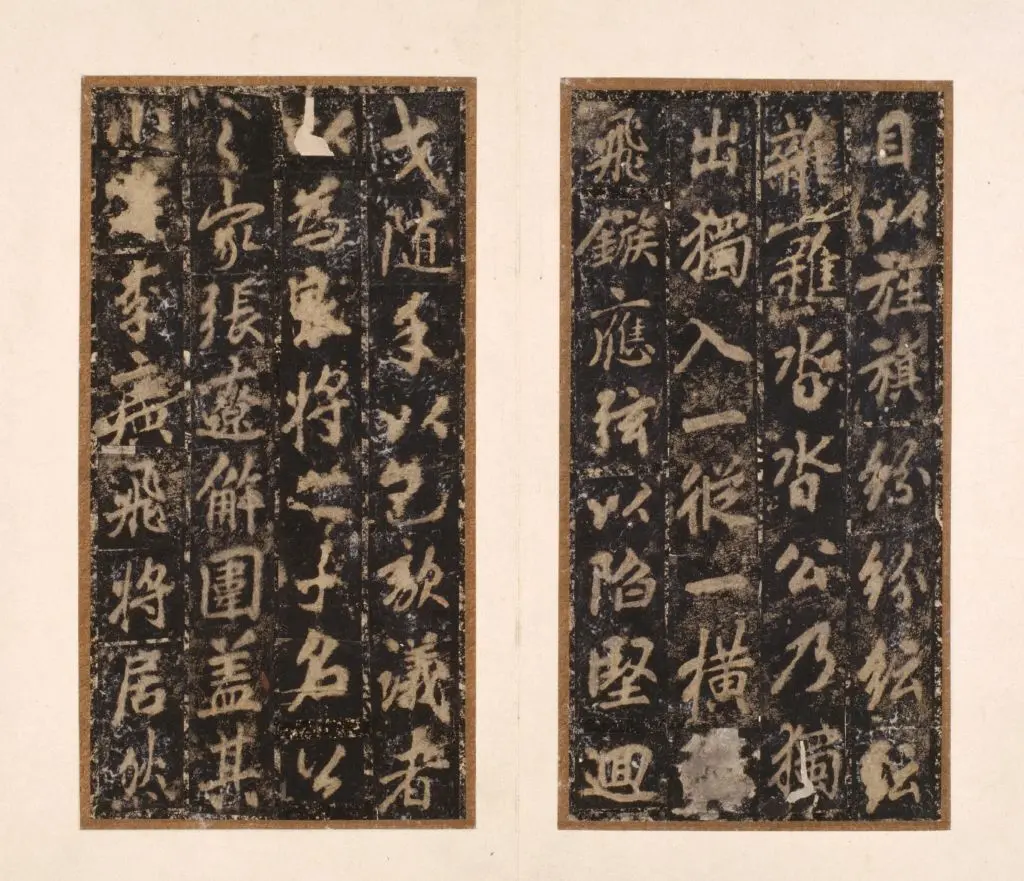 目以旌旗紛紛紜紜
雜雜沓沓公乃獨
出獨入一從一橫
飛鏃應弦以陷堅迴
戈随手以包敵議者
以為良將二子名公
之家張遼解圍盖其
小李廣飛將居